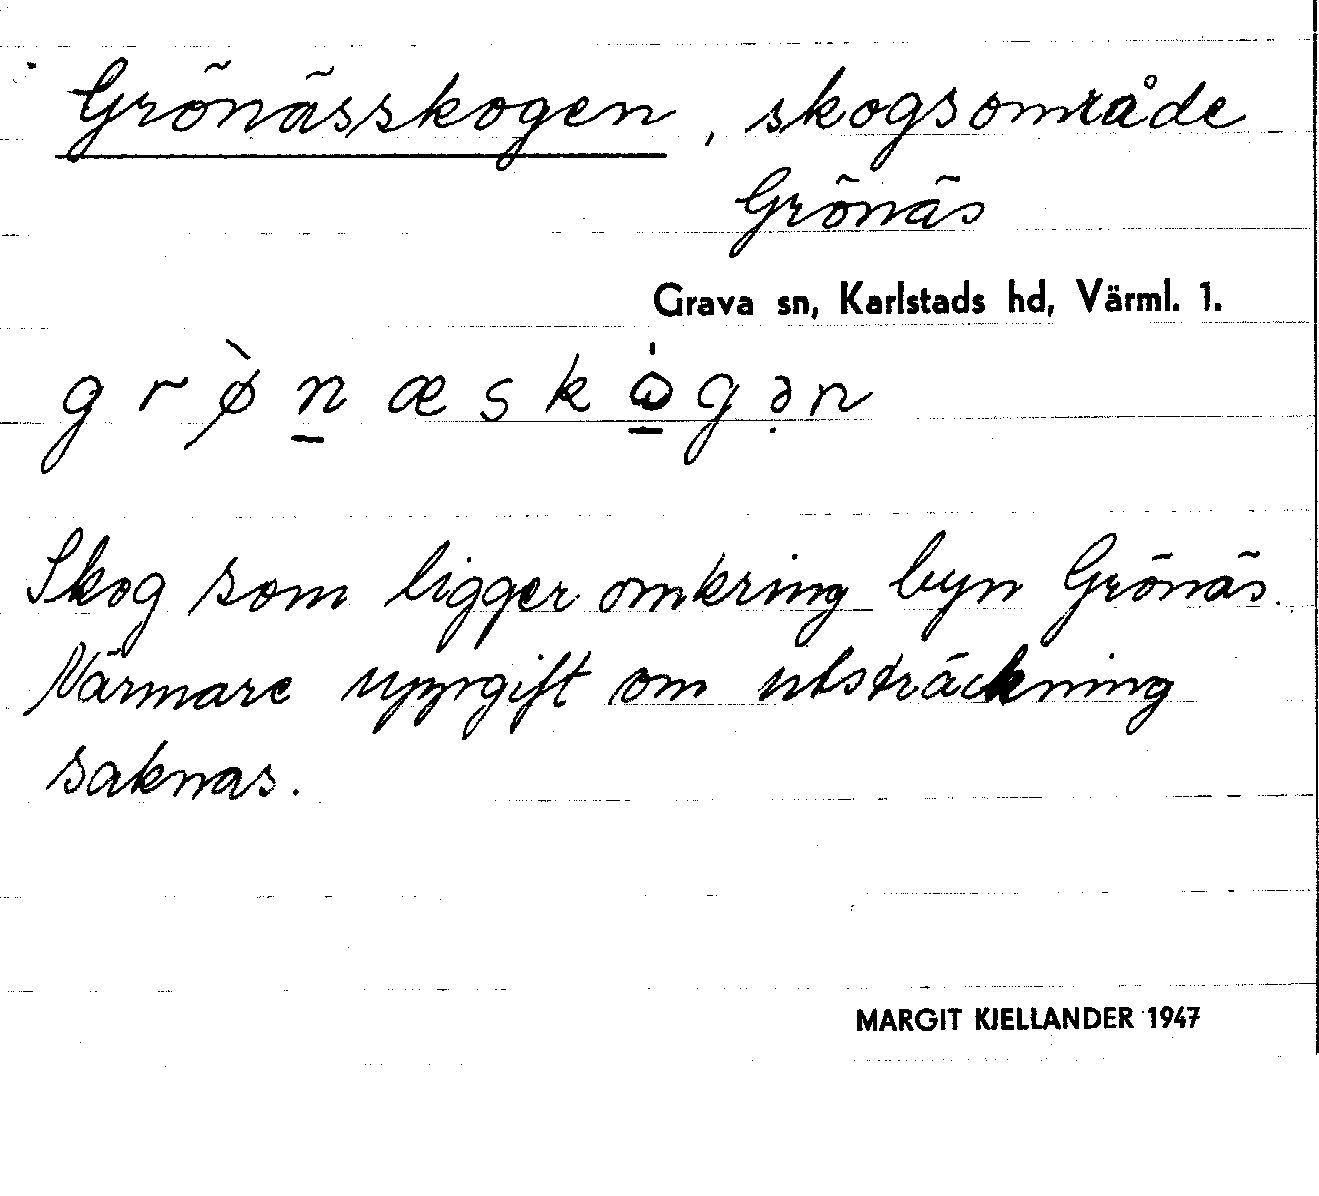 Grönässkogen, skogsområde
Grönäs
Grava sn, Karlstads hd, Värml. 1.
grø̀n̲æskω̲̍gən
Skog som ligger omkring byn Grönäs.
Närmare uppgift om utsträckning
saknas.
MARGIT KJELLANDER 1947